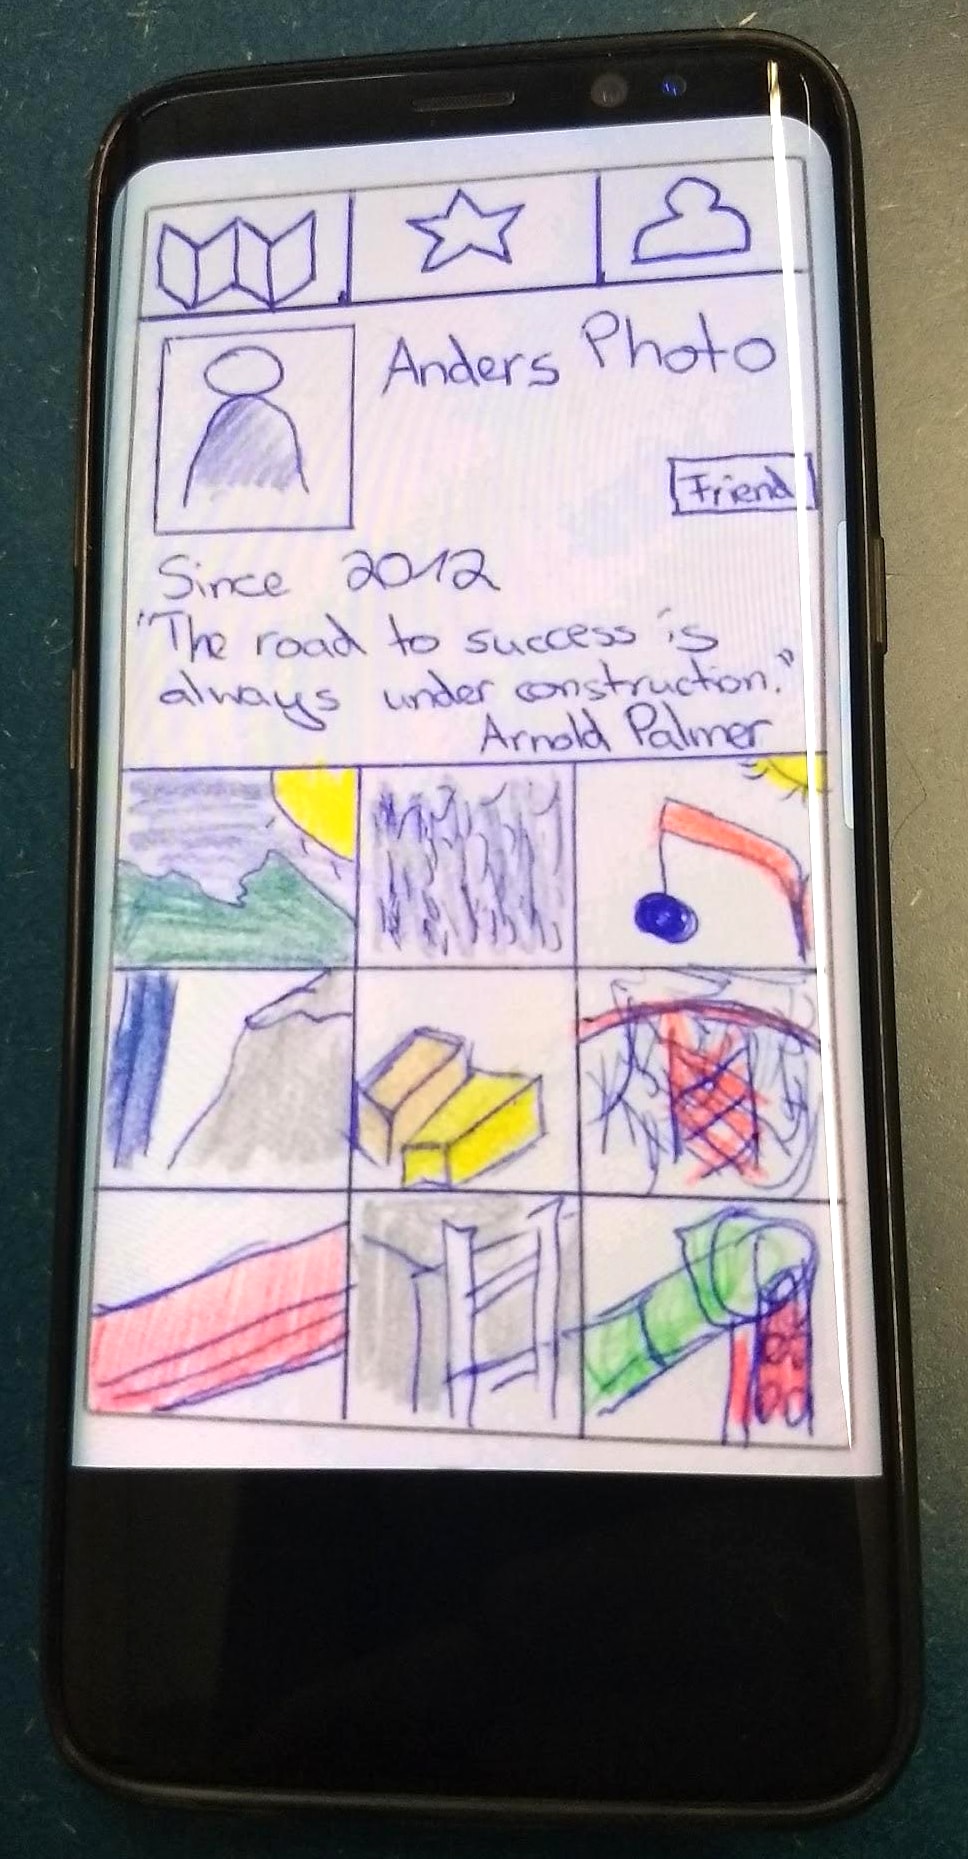 Anders Photo
Friend
Since 2012
"The road to success is
always under construction."
Arnold Palmer